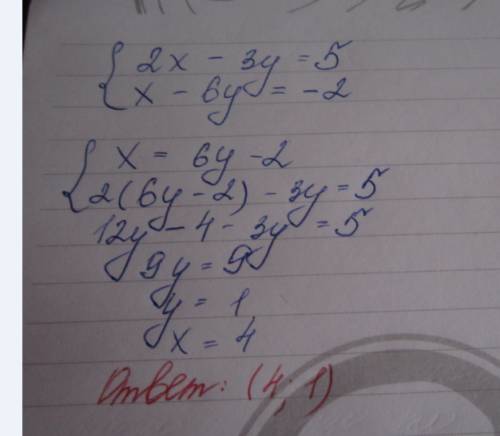 { 2x - 3y = 5
x - 6y = -2
{ x = 6y - 2
2(6y - 2) - 3y = 5
12y - 4 - 3y = 5
9y = 9
y = 1
x = 4
Ответ: (4; 1)